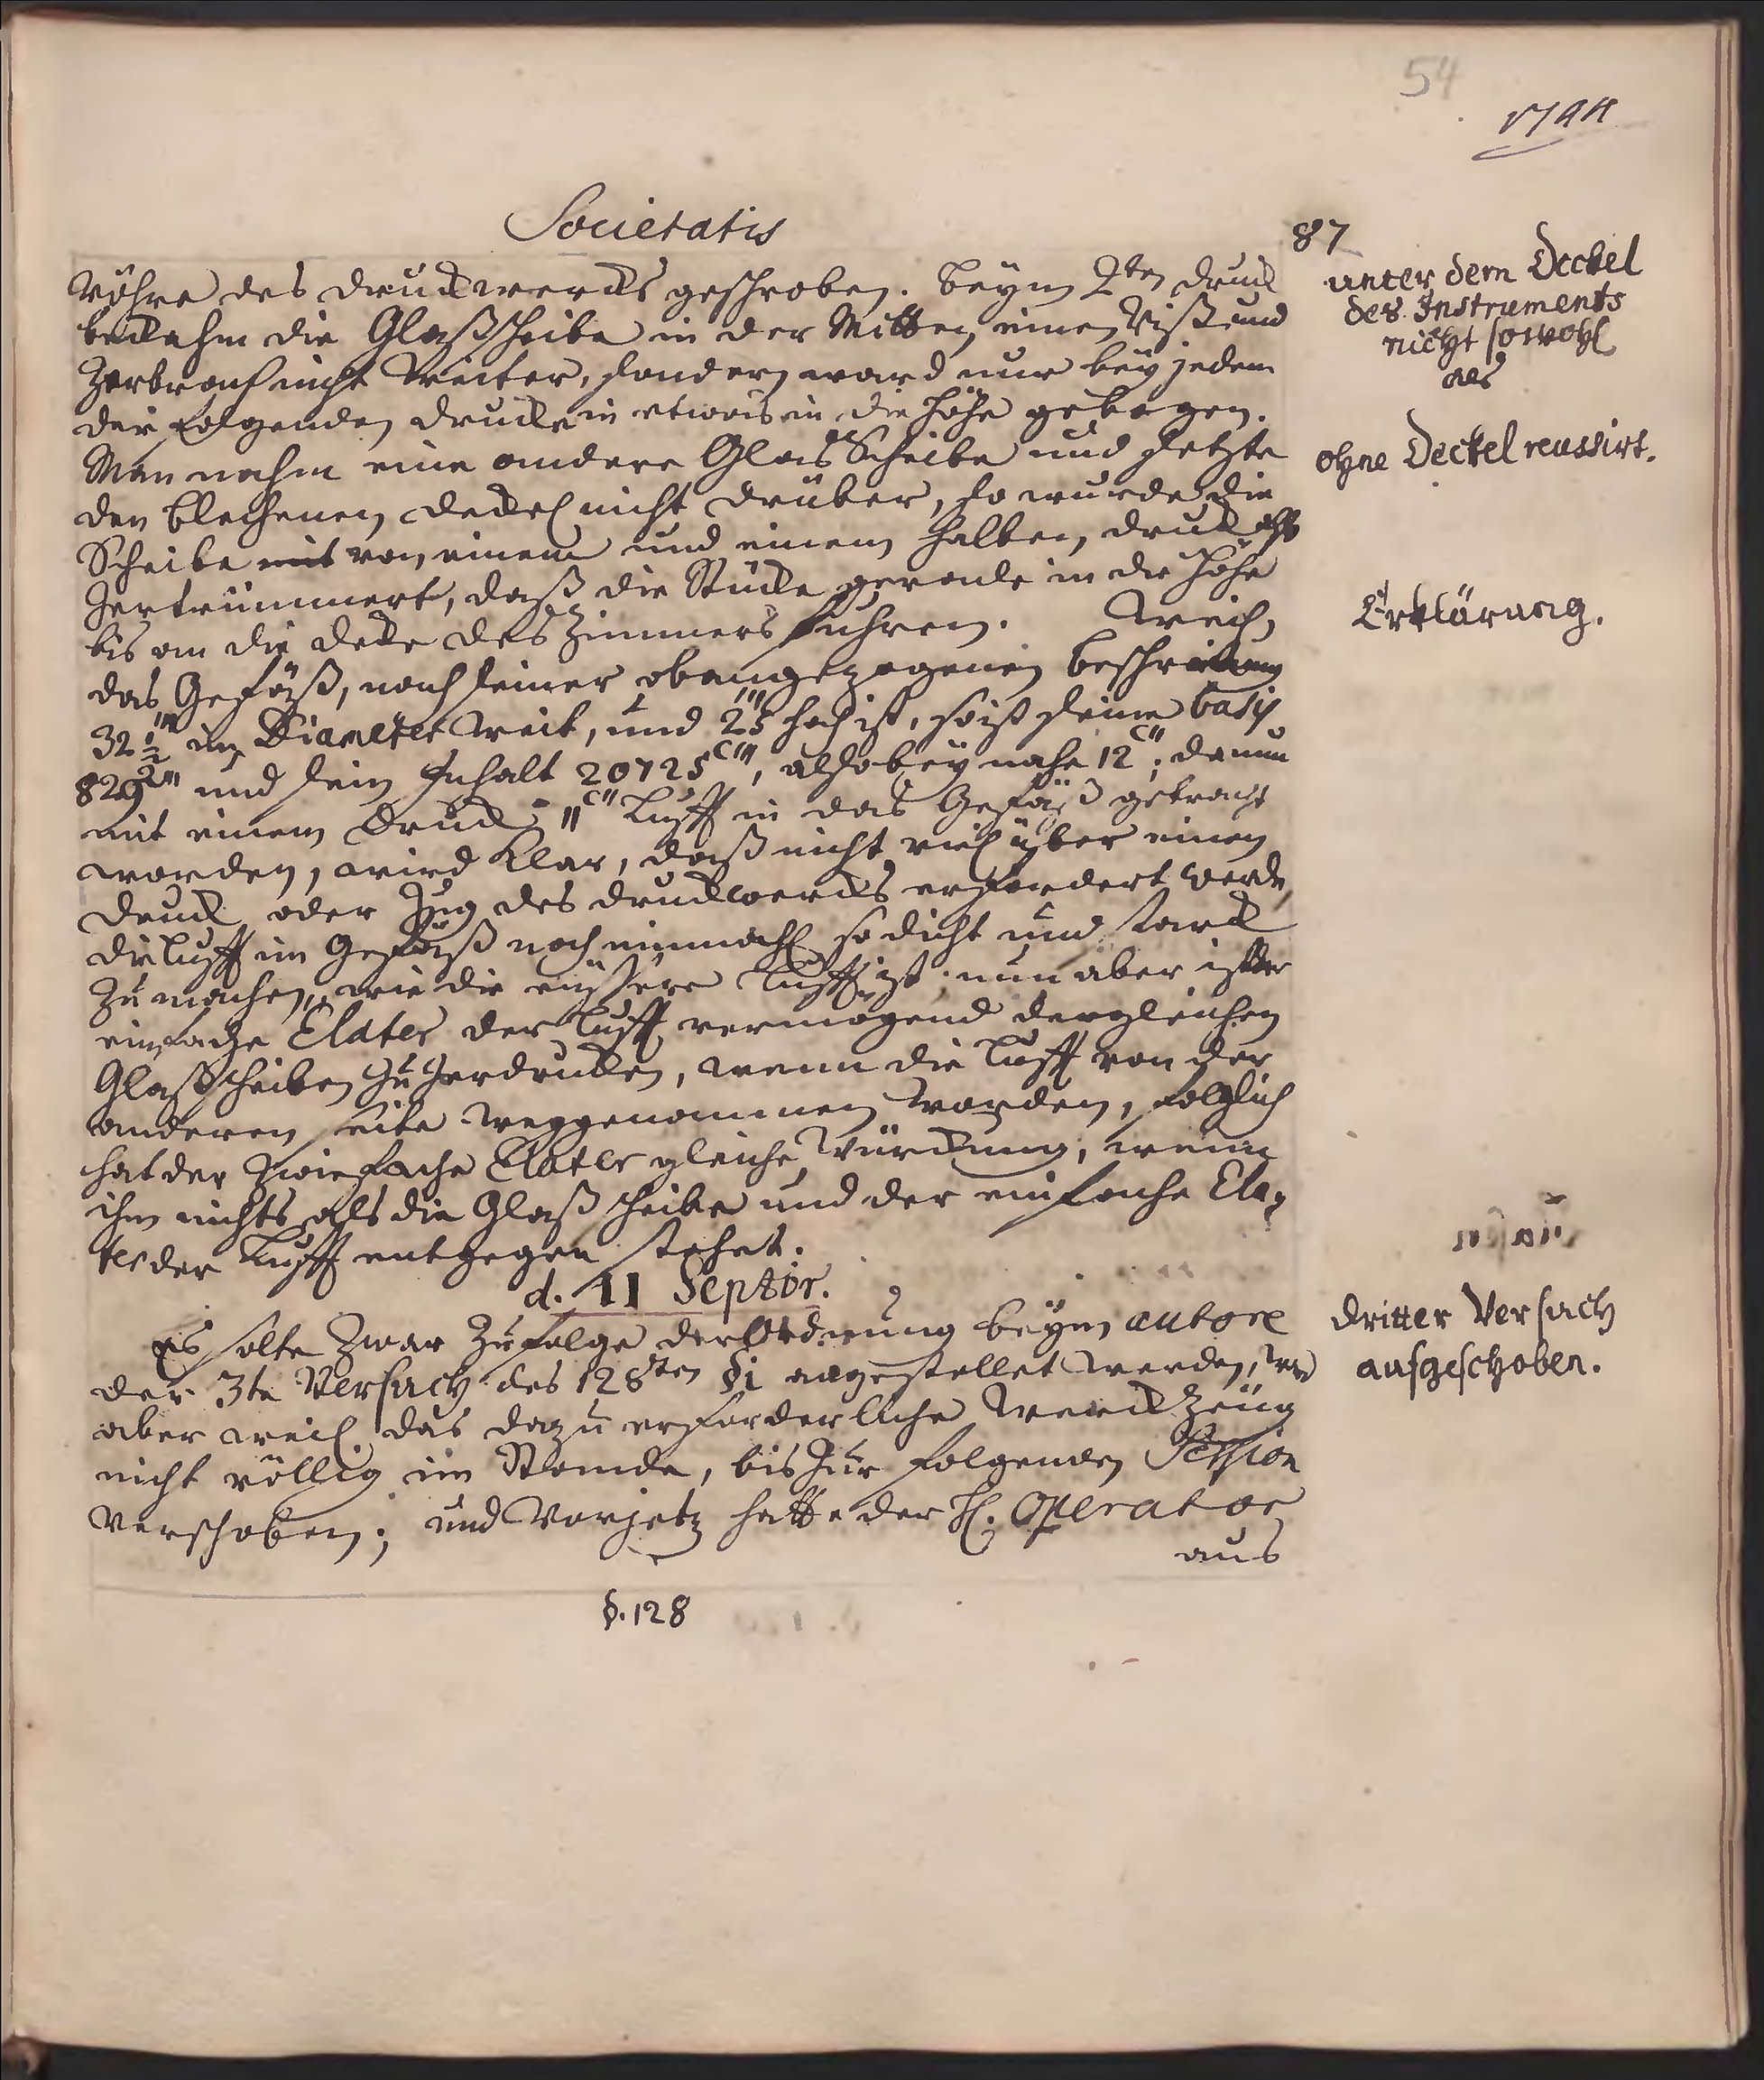 54
1744
Societatis
87
Röhre des druckwercks geschroben. beym 2ten druck
bekahm die Glaßscheibe in der Mitten einen Riß und
zerbrach nicht weiter, sondern ward nur bey jedem
der folgenden drucke in etwas in die Höhe gebogen.
Man nahm eine andere Glas Scheibe und setzte
den blechenen deckel nicht drüber, so wurde die
Scheibe mit von einem und einem halben druck also
zertrümmert, daß die Stücke gerade in die Höhe
bis an die decke des Zimmers fuhren. Weil,
das Gefäß, nach seiner obangezogenen beschreibung
32 1/2''' im Diameter weit, und 25''' hoch ist, so ist seine basis
829 und sein Inhalt 20725 c''', also bey nahe 12 c''; da nun
mit einem druck 11 c'' Lufft in das Gefäß gebracht
worden, wird klar, daß nicht viel über einen
druck oder Zug des druckwercks erfordert werde,
die Lufft im Gefäß noch einmahl so dicht und starck
zu machen, wie die äußere Lufft ist. nun aber ist der
einfache Elater der Lufft vermögend dergleichen
Glaßscheiben zu zerdrucken, wenn die Lufft von der
anderen seite weggenommen worden, folglich
hat der zwiefache Elater gleiche Würckung, wenn
ihm nichts als die Glaßscheibe und der einfache Ela-
ter der Lufft entgegen stehet.
d. 11 Septbr.
Es solte zwar zufolge der Ordnung beym autore
der 3te Versuch des 128sten §i angestellet werden, war
aber weil das dazu erforderliche Werckzeug
nicht völlig im Stande, bis zur folgenden Session
verschoben; und vorjetz hatte der H. Operator
aus
§. 128
unter dem Deckel
des Instruments
nicht sowohl
als
ohne Deckel reussirt.
Erklärung.
dritter Versuch
aufgeschoben.